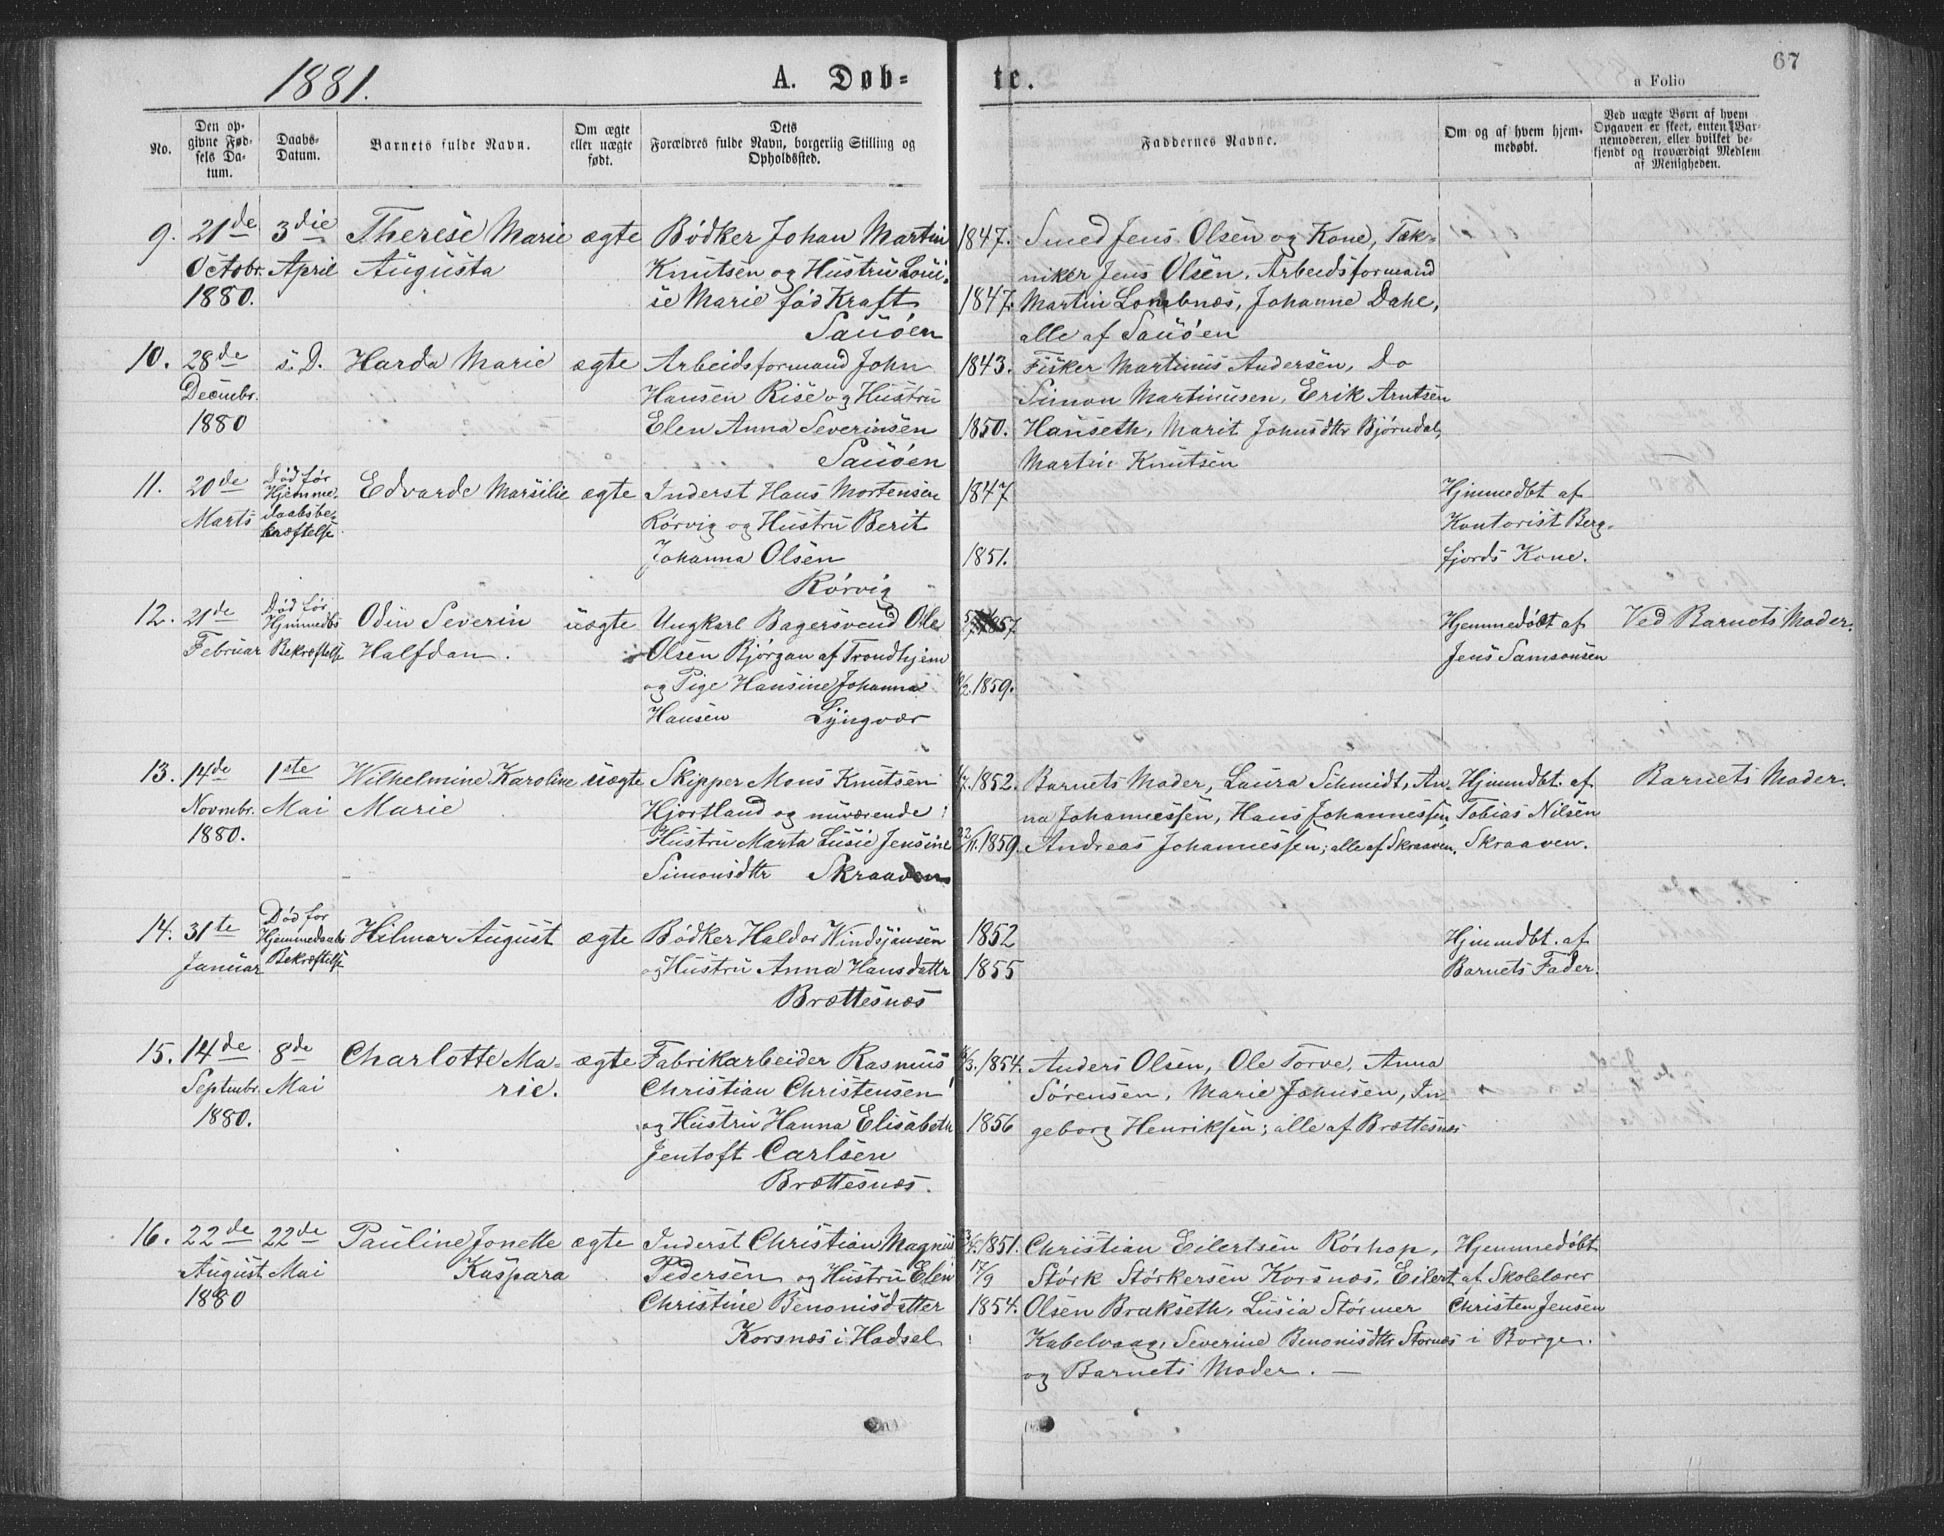 1881.
A. Døb-
te.
67
a Folio
No.
Den op-
givne Fød-
sels Da-
tum.
Daabs-
Datum.
Barnets fulde Navn.
Om ægte
eller uægte
født.
Dets
Forældres fulde Navn, borgerlig Stilling og
Opholdssted.
Faddernes Navne.
Om og af hvem hjem-
medøbt.
Ved uægte Børn af hvem
Opgaven er skeet, enten Bar-
nemoderen, eller hvilket be-
kjendt og troværdigt Medlem
af Menigheden.
9. 21de 3die Therese Marie ægte Bødker Johan Martin 1847. Smed Jens Olsen og Kone, Tek-
Octobr. April Augusta Knutsen og Hustru Loui- niker Jens Olsen, Arbeidsformand
1880. se Marie fød Kraft 1847. Martin Lombnæs, Johanne Dahl,
Sauøen alle af Sauøen
10. 28de s. D. Harda Marie ægte Arbeidsformand John 1843. Fisker Martinus Andersen, Do
Decembr. Hansen Rise og Hustru Simon Martinusen, Erik Arntsen
1880 Elen Anna Severinsen 1850. Hanseth, Marit Johnsdtr Bjørndal,
Sauøen Martin Knutsen
11. 20de Død før Edvarde Marsilie ægte Inderst Hans Mortensen 1847 Hjemmedbt af
Marts Hjemme- Rørvig og Hustru Berit Kontorist Berg-
daabsbe- Johanna Olsen 1851. fjords Kone.
kræftelse Rørvig
12. 21de Død før Odin Severin uægte Ungkarl Bagersvend Ole 1857. Hjemmedøbt af Ved Barnets Moder.
Februar Hjemmedbs Halfdan. Olsen Bjørgan af Trondhjem Jens Samsonsen
Bekræftelse og Pige Hansine Johanna 1859.
Hansen Lyngvær
13. 14de 1ste Wilhelmine Karoline uægte Skipper Mons Knutsen 1852. Barnets Moder, Laura Schmidt, An- Hjemmdbt. af Barnets Moder.
Novmbr. Mai Marie Hjortland og nuværende na Johannessen, Hans Johannessen, Tobias Nilsen
1880. Hustru Marta Lusie Jensine 22/11 1859. Andreas Johannessen; alle af Skraaven. Skraaven.
Simonsdtr Skraaven
14. 31te Død før Hilmar August ægte Bødker Haldor Windsjansen 1852 Hjemmdbt. af
Januar Hjemmedaabs og Hustru Anna Hansdatter 1855 Barnets Fader.
Bekræftelse Brettesnæs
15. 14de 8de Charlotte Ma- ægte Fabrikarbeider Rasmus 1854. Anders Olsen, Ole Torve, Anna
Septmbr. Mai rie. Christian Christensen Sørensen, Marie Johnsen, In-
1880. og Hustru Hanna Elisabeth 1856 geborg Henriksen; alle af Brettesnæs
Jentoft Carlsen
Brettesnæs.
16. 22de 22de Pauline Jonette ægte Inderst Christian Magnus 1851. Christian Eilertsen Rørhop, Hjemmedøbt
August Mai Kaspara Pedersen og Hustru Elen 17/9 Størk Størkersen Korsnæs, Eilert af Skolelærer
1880 Christine Benonisdatter 1854. Olsen Brakseth, Lusia Størmer Christen Jensen
Korsnæs i Hadsel Kabelvaag, Severine Benonisdtr Stornæs i Borge.
og Barnets Moder. —